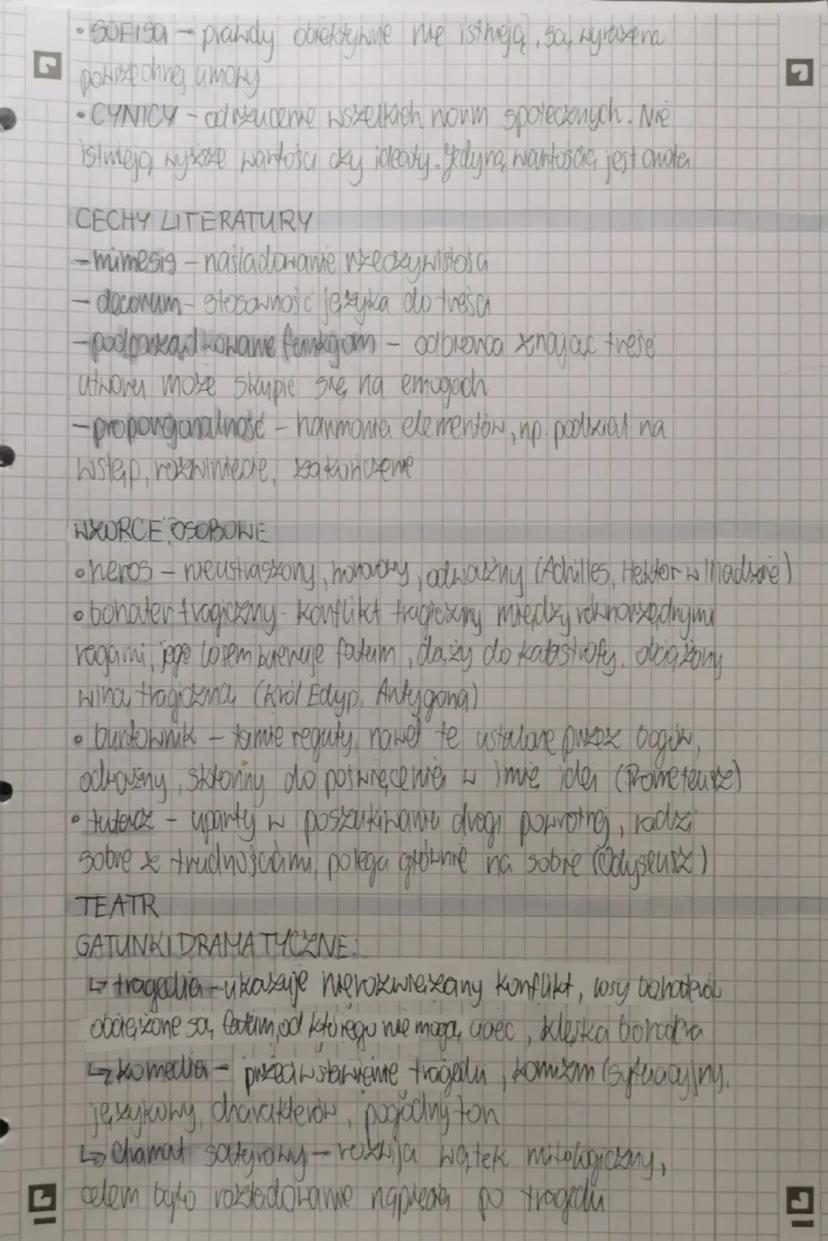 • SOFIŚCI – prawdy obiektywne nie istnieją, są wyrażeniem
powszechnej umowy
• CYNICY – odrzucenie wszelkich norm społecznych. Nie
istnieją wyższe wartości czy ideały. Jedyną wartością jest cnota
CECHY LITERATURY
– mimesis – naśladowanie rzeczywistości
– decorum – stosowność języka do treści
– podporządkowanie funkcjom – odbiorca znając treść
utworu może skupić się na emocjach
– proporcjonalność – harmonia elementów, np. podział na
wstęp, rozwinięcie, zakończenie
WZORCE OSOBOWE
• heros – nieustraszony, honorowy, odważny (Achilles, Hektor w Iliadzie)
• bohater tragiczny - konflikt tragiczny między równorzędnymi
racjami, jego losem kieruje fatum, dąży do katastrofy, obciążony
winą tragiczną (Król Edyp, Antygona)
• buntownik – łamie reguły, nawet te ustalone przez bogów,
odważny, skłonny do poświęcenia w imię idei (Prometeusz)
• tułacz – uparty w poszukiwaniu drogi powrotnej, radzi
sobie z trudnościami, polega głównie na sobie (Odyseusz)
TEATR
GATUNKI DRAMATYCZNE:
↳ tragedia – ukazuje nierozwiązany konflikt, losy bohaterów
obciążone są fatum, od którego nie mogą uciec, klęska bohatera
↳ komedia – przeciwstawienie tragedii, komizm (sytuacyjny,
językowy, charakterów, pogodny ton
↳ dramat satyrowy – rozwija wątek mitologiczny,
celem było rozładowanie napięcia po tragedii